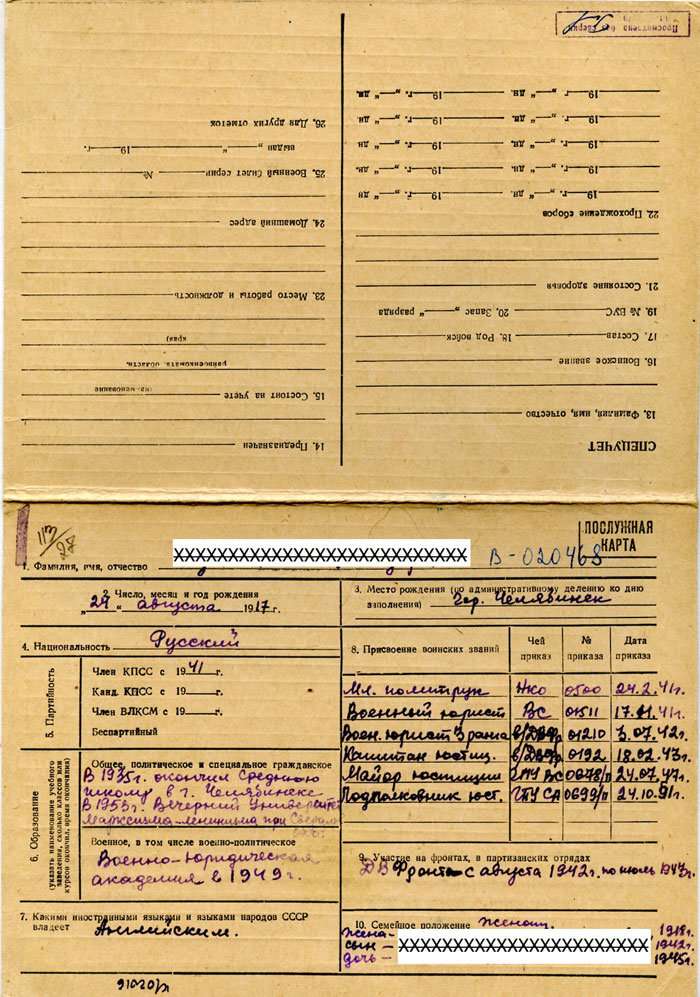 Просмотрено без сверки
19 г. „ “ дн. 19 г. „ “ дн.
19 г. „ “ дн. 19 г. „ “ дн.
19 г. „ “ дн. 19 г. „ “ дн.
19 г. „ “ дн. 19 г. „ “ дн.
19 г. „ “ дн 19 г. „ “ дн
22. Прохождение сборов
21. Состояние здоровья
19. № ВУС 20. Запас „ “ разряда
17. Состав 18. Род войск
16. Воинское звание
13. Фамилия, имя, отчество
СПЕЦУЧЕТ
26. Для других отметок
выдан „ “ 19 г.
25. Военный билет серии №
24. Домашний адрес
23. Место работы и должность
края)
райвоенкомата, области,
(наименование
15. Состоит на учете
14. Предназначен
113/28
ПОСЛУЖНАЯ КАРТА
XXXXXXXXXXXXXXXXXXXXXXXXXXX
В-020468
1. Фамилия, имя, отчество
2. Число, месяц и год рождения
„29“ августа 1917 г.
3. Место рождения (по административному делению ко дню
заполнения) гор. Челябинск
4. Национальность Русский
5. Партийность
Член КПСС с 1941 г.
Канд. КПСС с 19 г.
Член ВЛКСМ с 19 г.
Беспартийный
6. Образование
(указать наименование учебного
заведения, сколько классов или
курсов окончил, время окончания)
Общее, политическое и специальное гражданское
В 1935г. окончил среднюю
школу в г. Челябинске
В 1953г. Вечерний Университет
Марксизма-ленинизма при
Военное, в том числе военно-политическое
Военно-юридическая
академия в 1949г.
7. Какими иностранными языками и языками народов СССР
владеет Английским.
8. Присвоение воинских званий Чей приказ № приказа Дата приказа
Мл. политрук НКО 0500 24.2.41г.
Военный юрист ВС 0511 17.11.41г.
Воен. юрист 3 ранга 01210 3.07.42г.
Капитан юстиц. 0192 18.02.43г.
Майор юстиции ГПУ ВС 0678/п 24.07.47г.
Подполковник юст. ГПУ СА 0699/п 24.10.51г.
9. Участие на фронтах, в партизанских отрядах
ДВ Фронт с августа 1942г. по июль 1943г.
10. Семейное положение Женат.
жена - 1918г.
сын - 1942г.
XXXXXXXXXXXXXXXXXXXXXXX
дочь - 1945г.